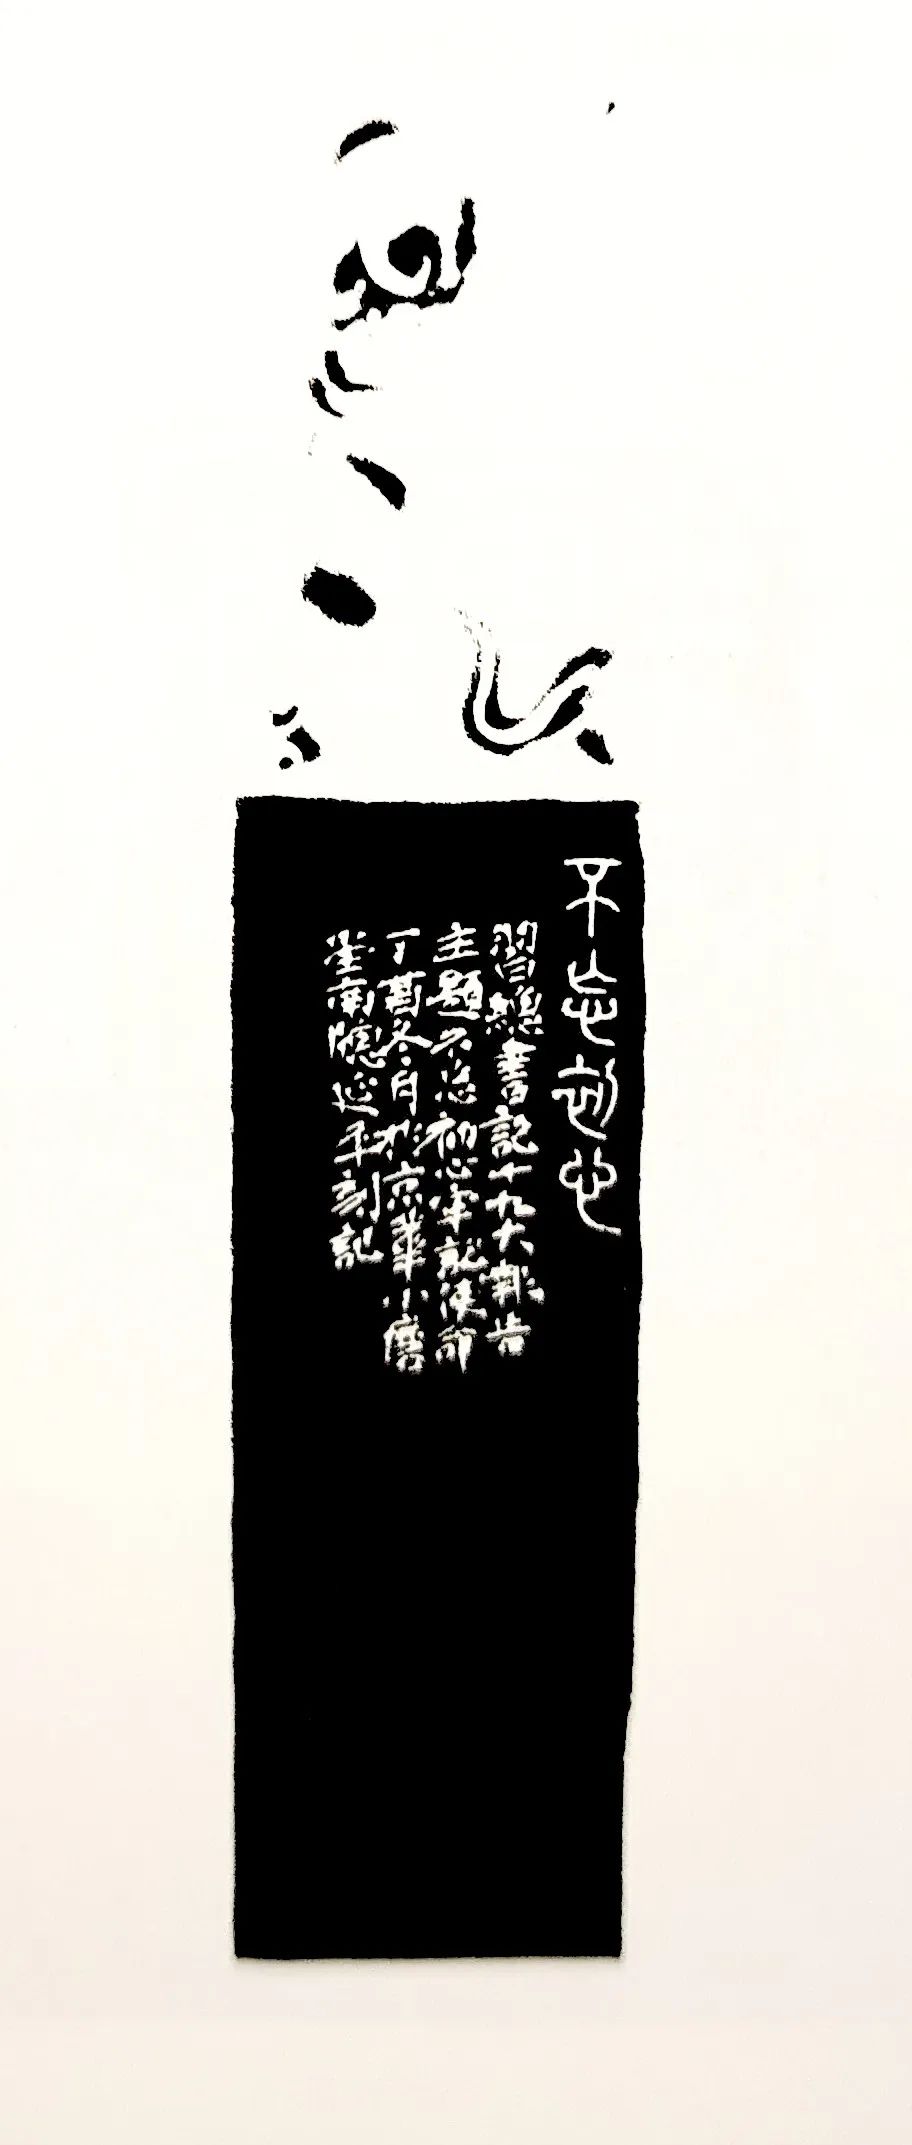 不忘初心
習總書記十九大報告
主題不忘初心牢記使命
丁酉冬月於京華小磨
南隱延平刻記